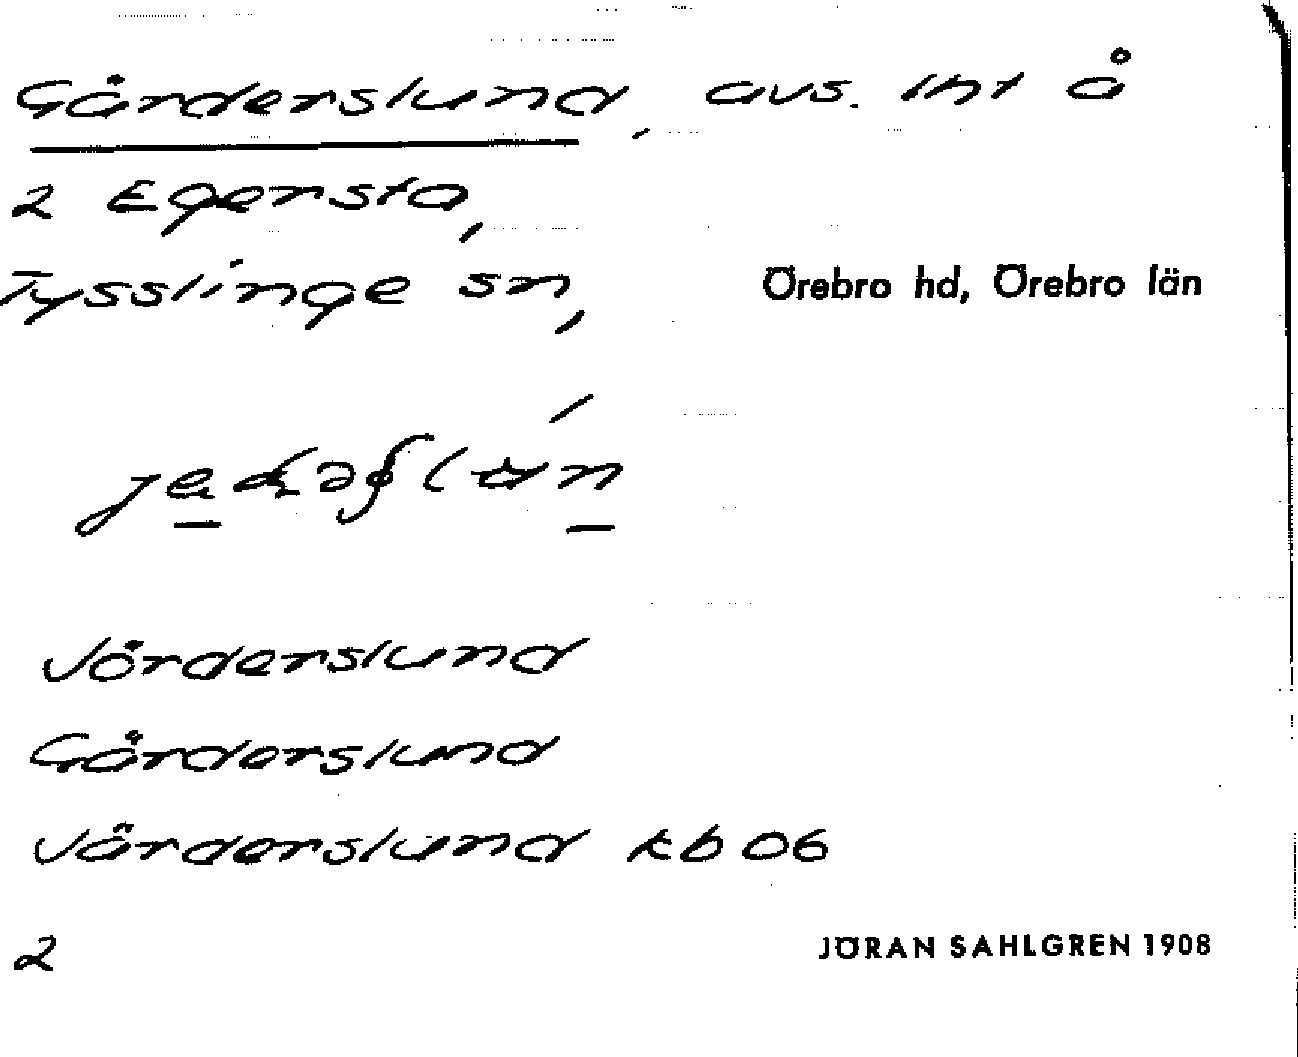 Gärderslund, avs. lht å
2 Egersta,
Tysslinge sn, Örebro hd, Örebro län
Jörderslund
Gärderslund
Järderslund kb 06
2
JÖRAN SAHLGREN 1908